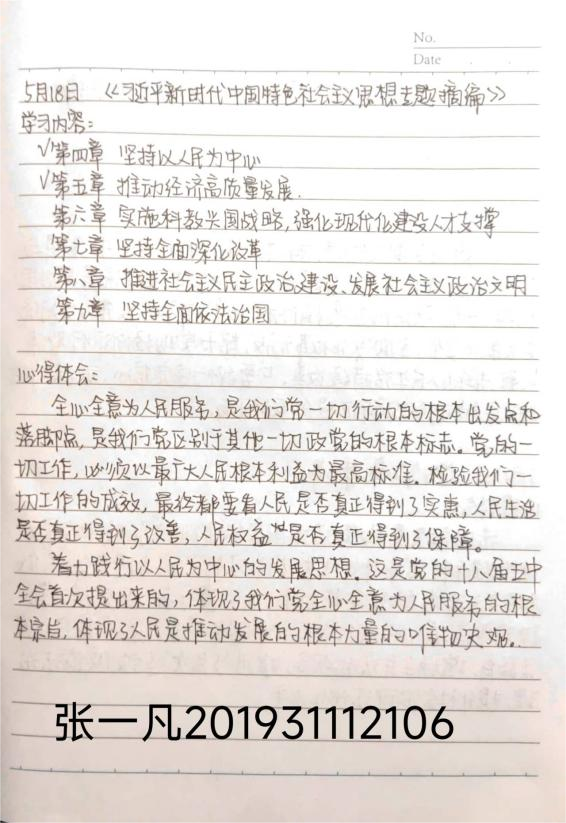 No.
Date
5月18日 《习近平新时代中国特色社会主义思想专题摘编》
学习内容：
√第四章 坚持以人民为中心
√第五章 推动经济高质量发展.
第六章 实施科教兴国战略,强化现代化建设人才支撑
第七章 坚持全面深化改革
第八章 推进社会主义民主政治建设、发展社会主义政治文明
第九章 坚持全面依法治国
心得体会：
全心全意为人民服务，是我们党一切行动的根本出发点和
落脚点，是我们党区别于其他一切政党的根本标志。党的一
切工作，必须以最广大人民根本利益为最高标准。检验我们一
切工作的成效，最终都要看人民是否真正得到了实惠，人民生活
是否真正得到了改善，人民权益是否真正得到了保障。
着力践行以人民为中心的发展思想。这是党的十八届五中
全会首次提出来的，体现了我们党全心全意为人民服务的根
本宗旨，体现了人民是推动发展的根本力量的唯物史观。
张一凡201931112106